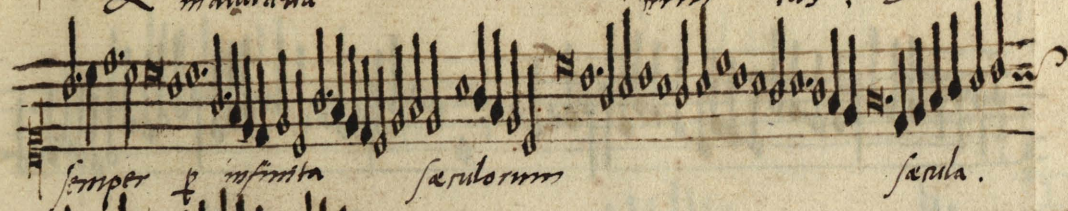 semper ꝑ infinita sæculorum sæcula.